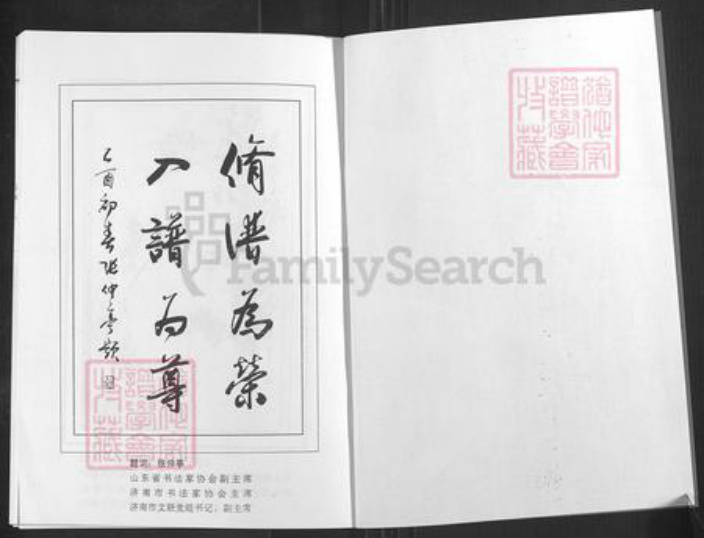 脩譜為榮
入譜为尊
乙酉初春张仲亭题
题词：张仲亭
山东省书法家协会副主席
济南市书法家协会主席
济南市文联党组书记、副主席
FamilySearch